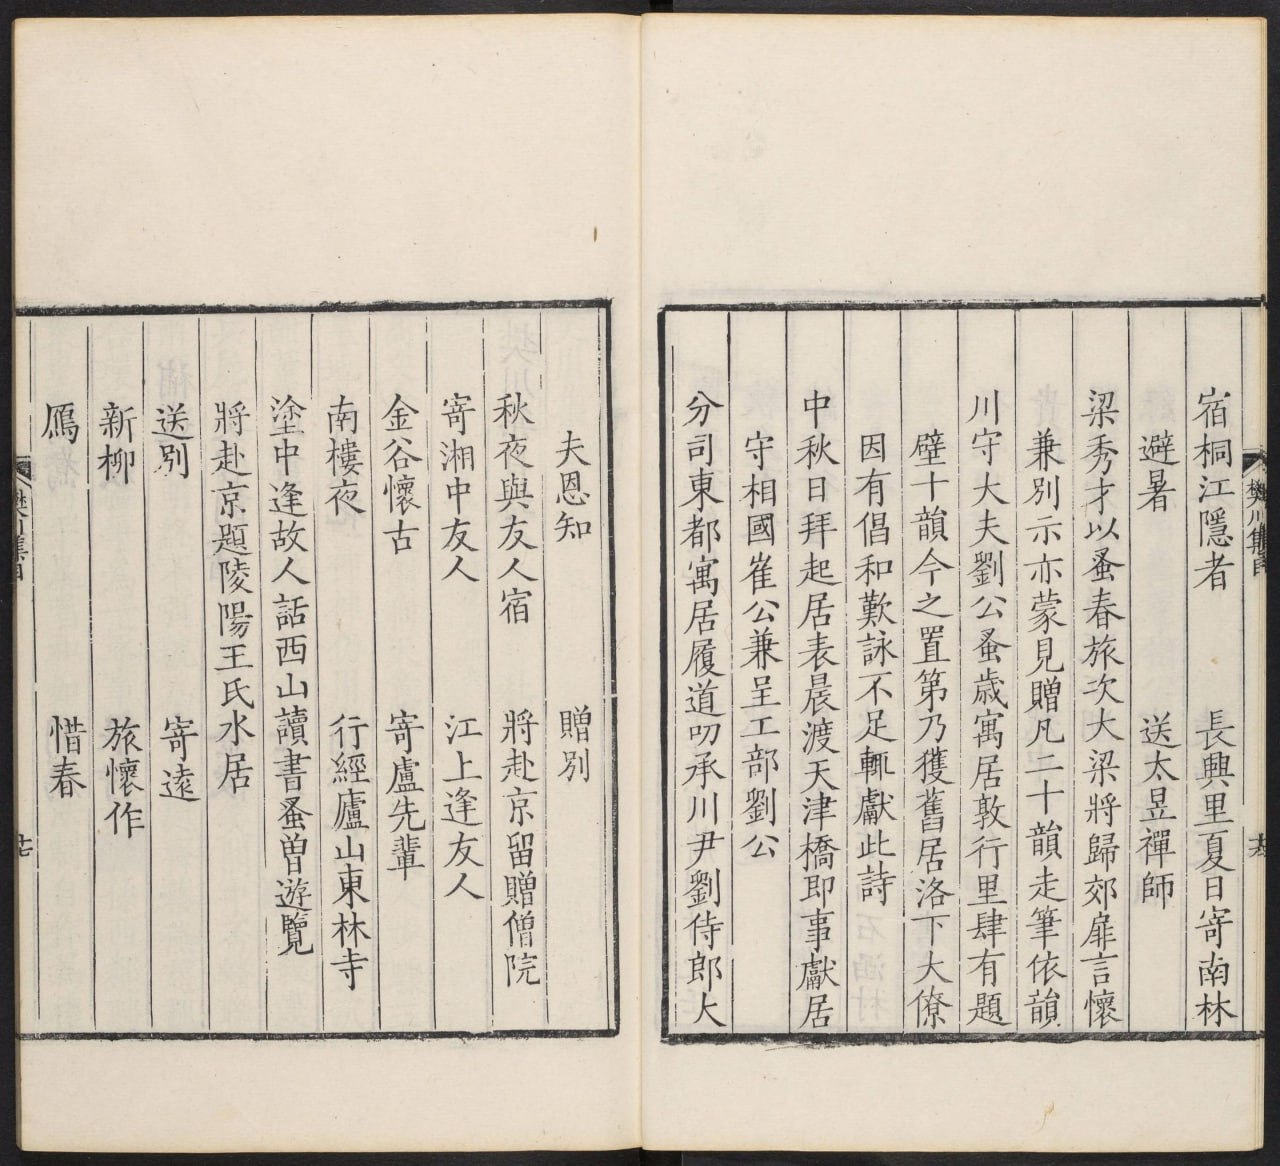 宿桐江隱者 長興里夏日寄南林
避暑 送太昱禪師
梁秀才以蚤春旅次大梁將歸郊扉言懷
兼別示亦蒙見贈凡二十韻走筆依韻
川守大夫劉公蚤歲寓居敦行里肆有題
壁十韻今之置第乃獲舊居洛下大僚
因有倡和歎詠不足輒獻此詩
中秋日拜起居表晨渡天津橋即事獻居
守相國崔公兼呈工部劉公
分司東都寓居履道叨承川尹劉侍郎大
夫恩知 贈別
秋夜與友人宿 將赴京留贈僧院
寄湘中友人 江上逢友人
金谷懷古 寄盧先輩
南樓夜 行經廬山東林寺
塗中逢故人話西山讀書蚤曽遊覽
將赴京題陵陽王氏水居
送別 寄遠
新柳 旅懷作
鴈 惜春
樊川集目